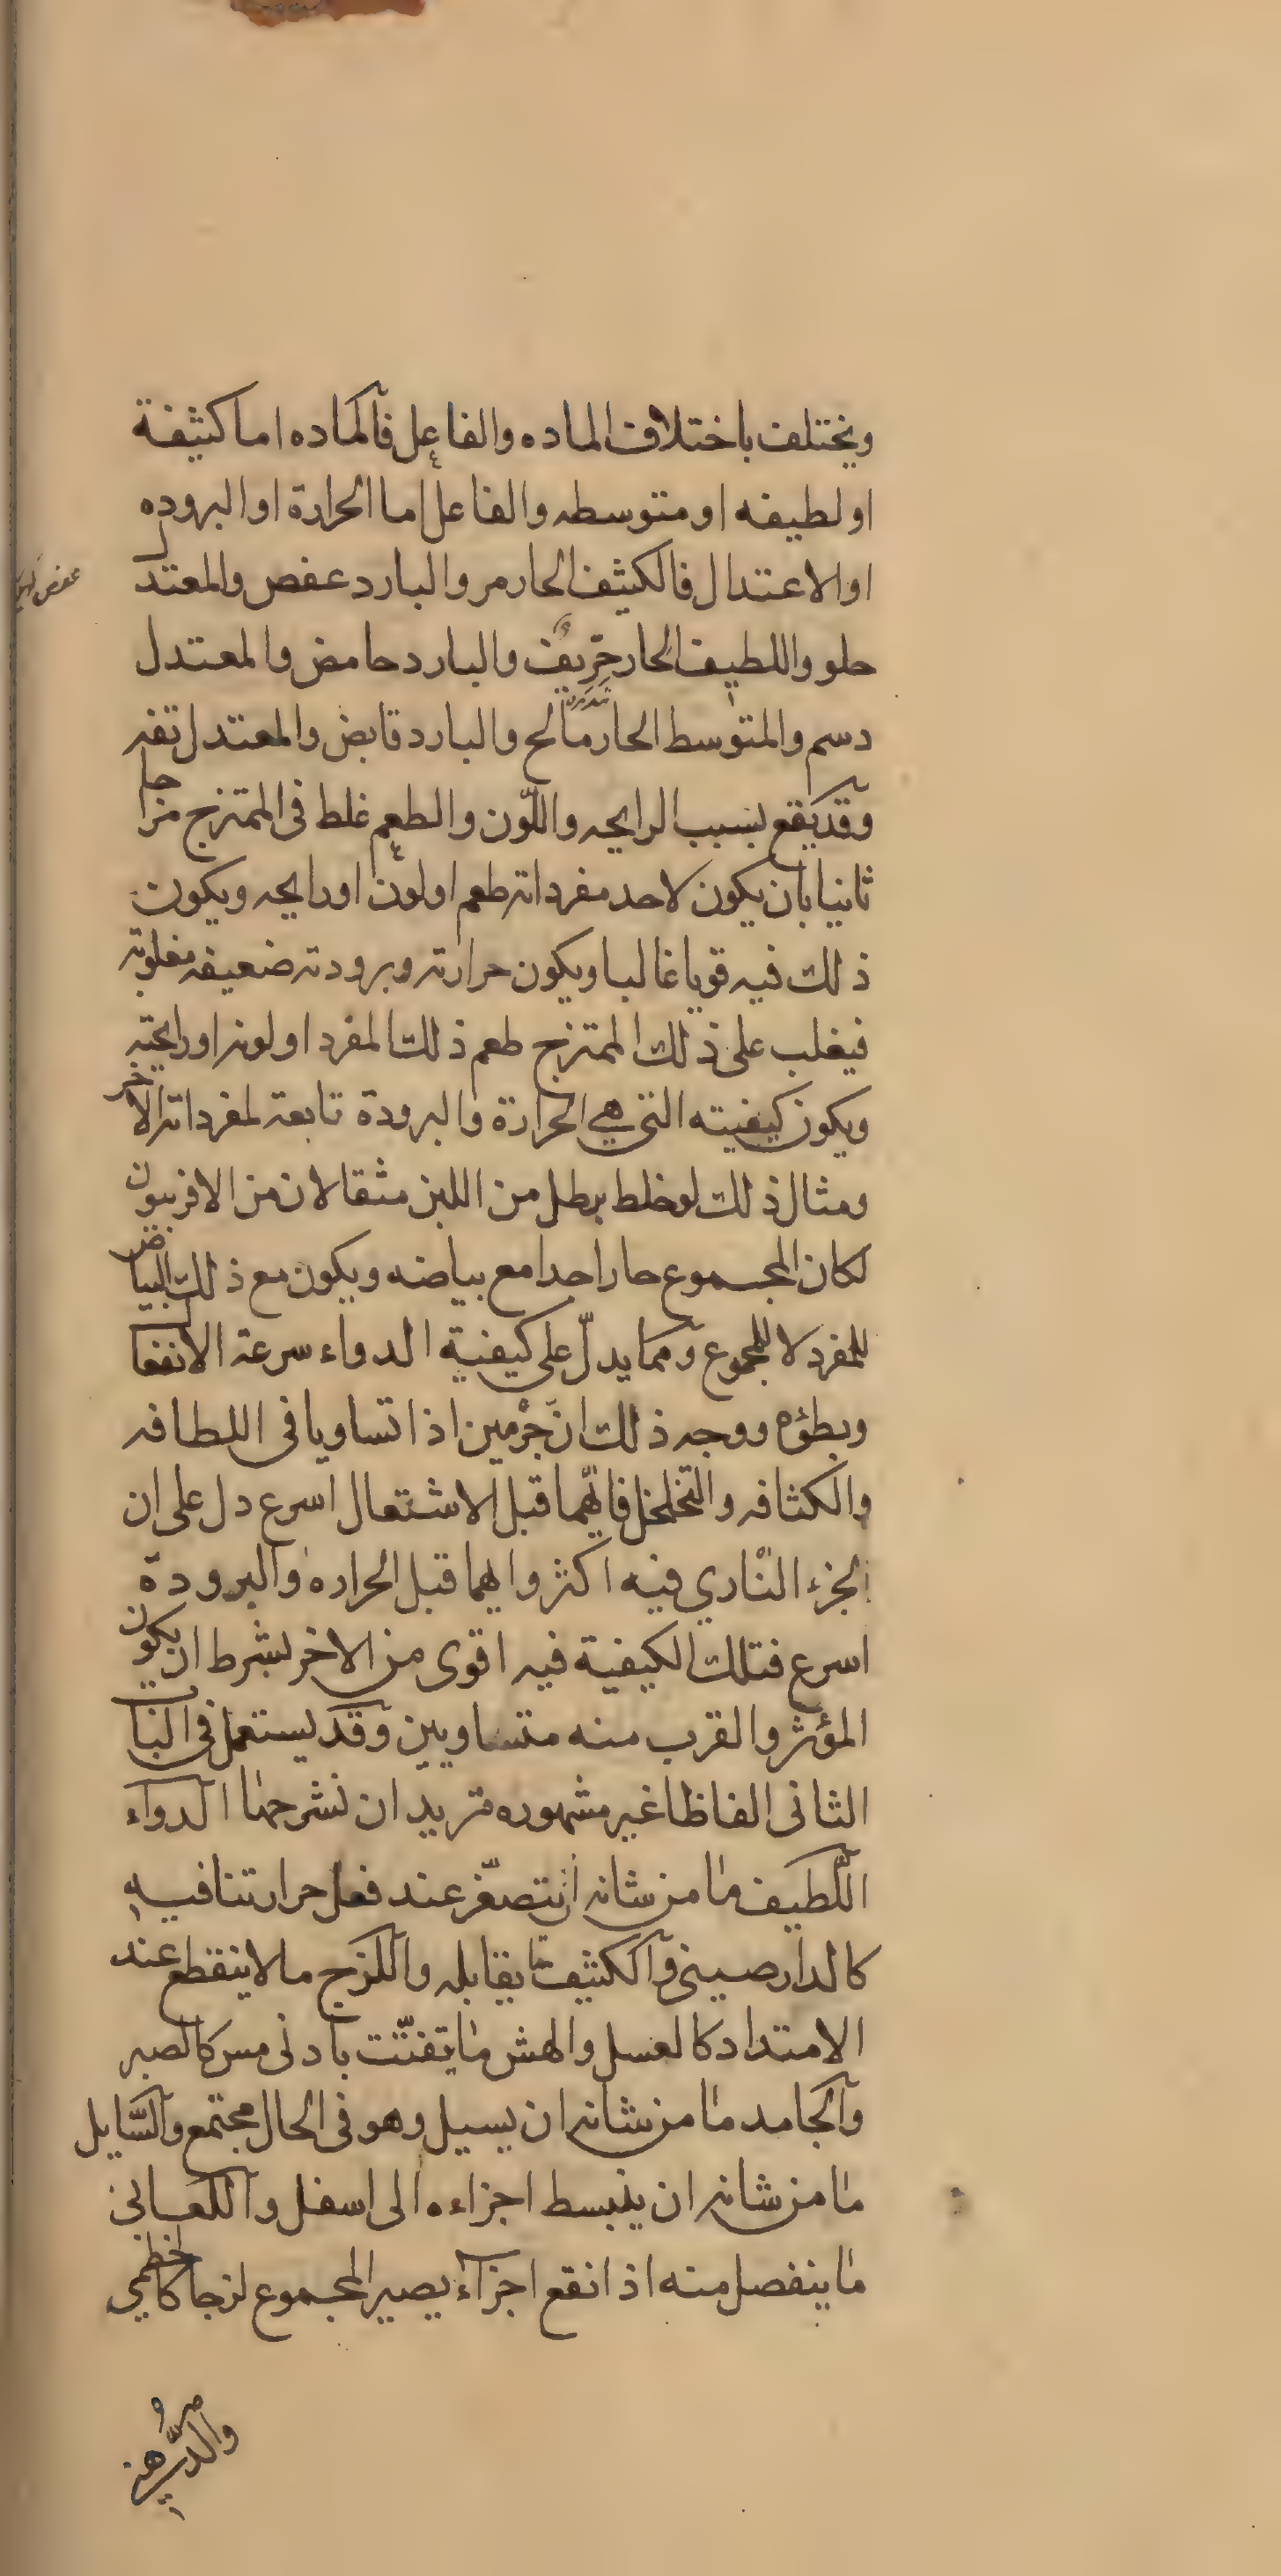 ويختلف باختلاف الماده والفاعل فالماده اما كثيفة
او لطيفه او متوسطه والفاعل اما الحرارة او البروده
او الاعتدال فالكثيف الحار مر والبارد عفص والمعتدل
حلو واللطيف الحار حرّيف والبارد حامض والمعتدل
دسم والمتوسط الحار مالح والبارد قابض والمعتدل تفه
وقد يقع بسبب الرايحه واللّون والطعم غلط فى الممتزج مزاجا
ثانيا بان يكون لاحد مفرداته طعم او لون او رايحه ويكون
ذلك فيه قويا غالبا ويكون حرارته وبرودته ضعيفه مغلوبة
فيغلب على ذلك الممتزج طعم ذلك المفرد او لونه او رايحته
ويكون كيفيته التى هي الحرارة والبرودة تابعة لمفرداته الاخر
ومثال ذلك لو خلط برطل من اللبن مثقالان من الافربيون
لكان المجموع حارا جدا مع بياضه ويكون مع ذلك البياض
للمفرد لا للمجموع ومما يدلّ على كيفية الدواء سرعة الانفعال
وبطؤه ووجه ذلك انّ جرْمين اذا تساويا فى اللطافه
والكثافه والتخلخل فايّهما قبل الاشتعال اسرع دل على ان
الجزء النّاري فيه اكثر وايهما قبل الحراره والبرودة
اسرع فتلك الكيفية فيه اقوى من الاخر بشرط ان يكون
المؤثر والقرب منه متساويين وقد يستعمل فى الباب
الثانى الفاظا غير مشهوره نريد ان نشرحها الدواء
اللّطيف ما من شانه ان يتصغّر عند فعل حرارتنا فيه
كالدارصينى والكثيف ما يقابله واللزج ما لا ينقطع عند
الامتداد كالعسل والهش ما يتفتّت بادنى مس كالصبر
والجامد ما من شانه ان يسيل وهو فى الحال مجتمع والسّايل
ما من شانه ان ينبسط اجزاءه الى اسفل واللعابى
ما ينفصل منه اذا نقع اجزاءٌ يصير المجموع لزجا كالخطمي
والدُّهنى